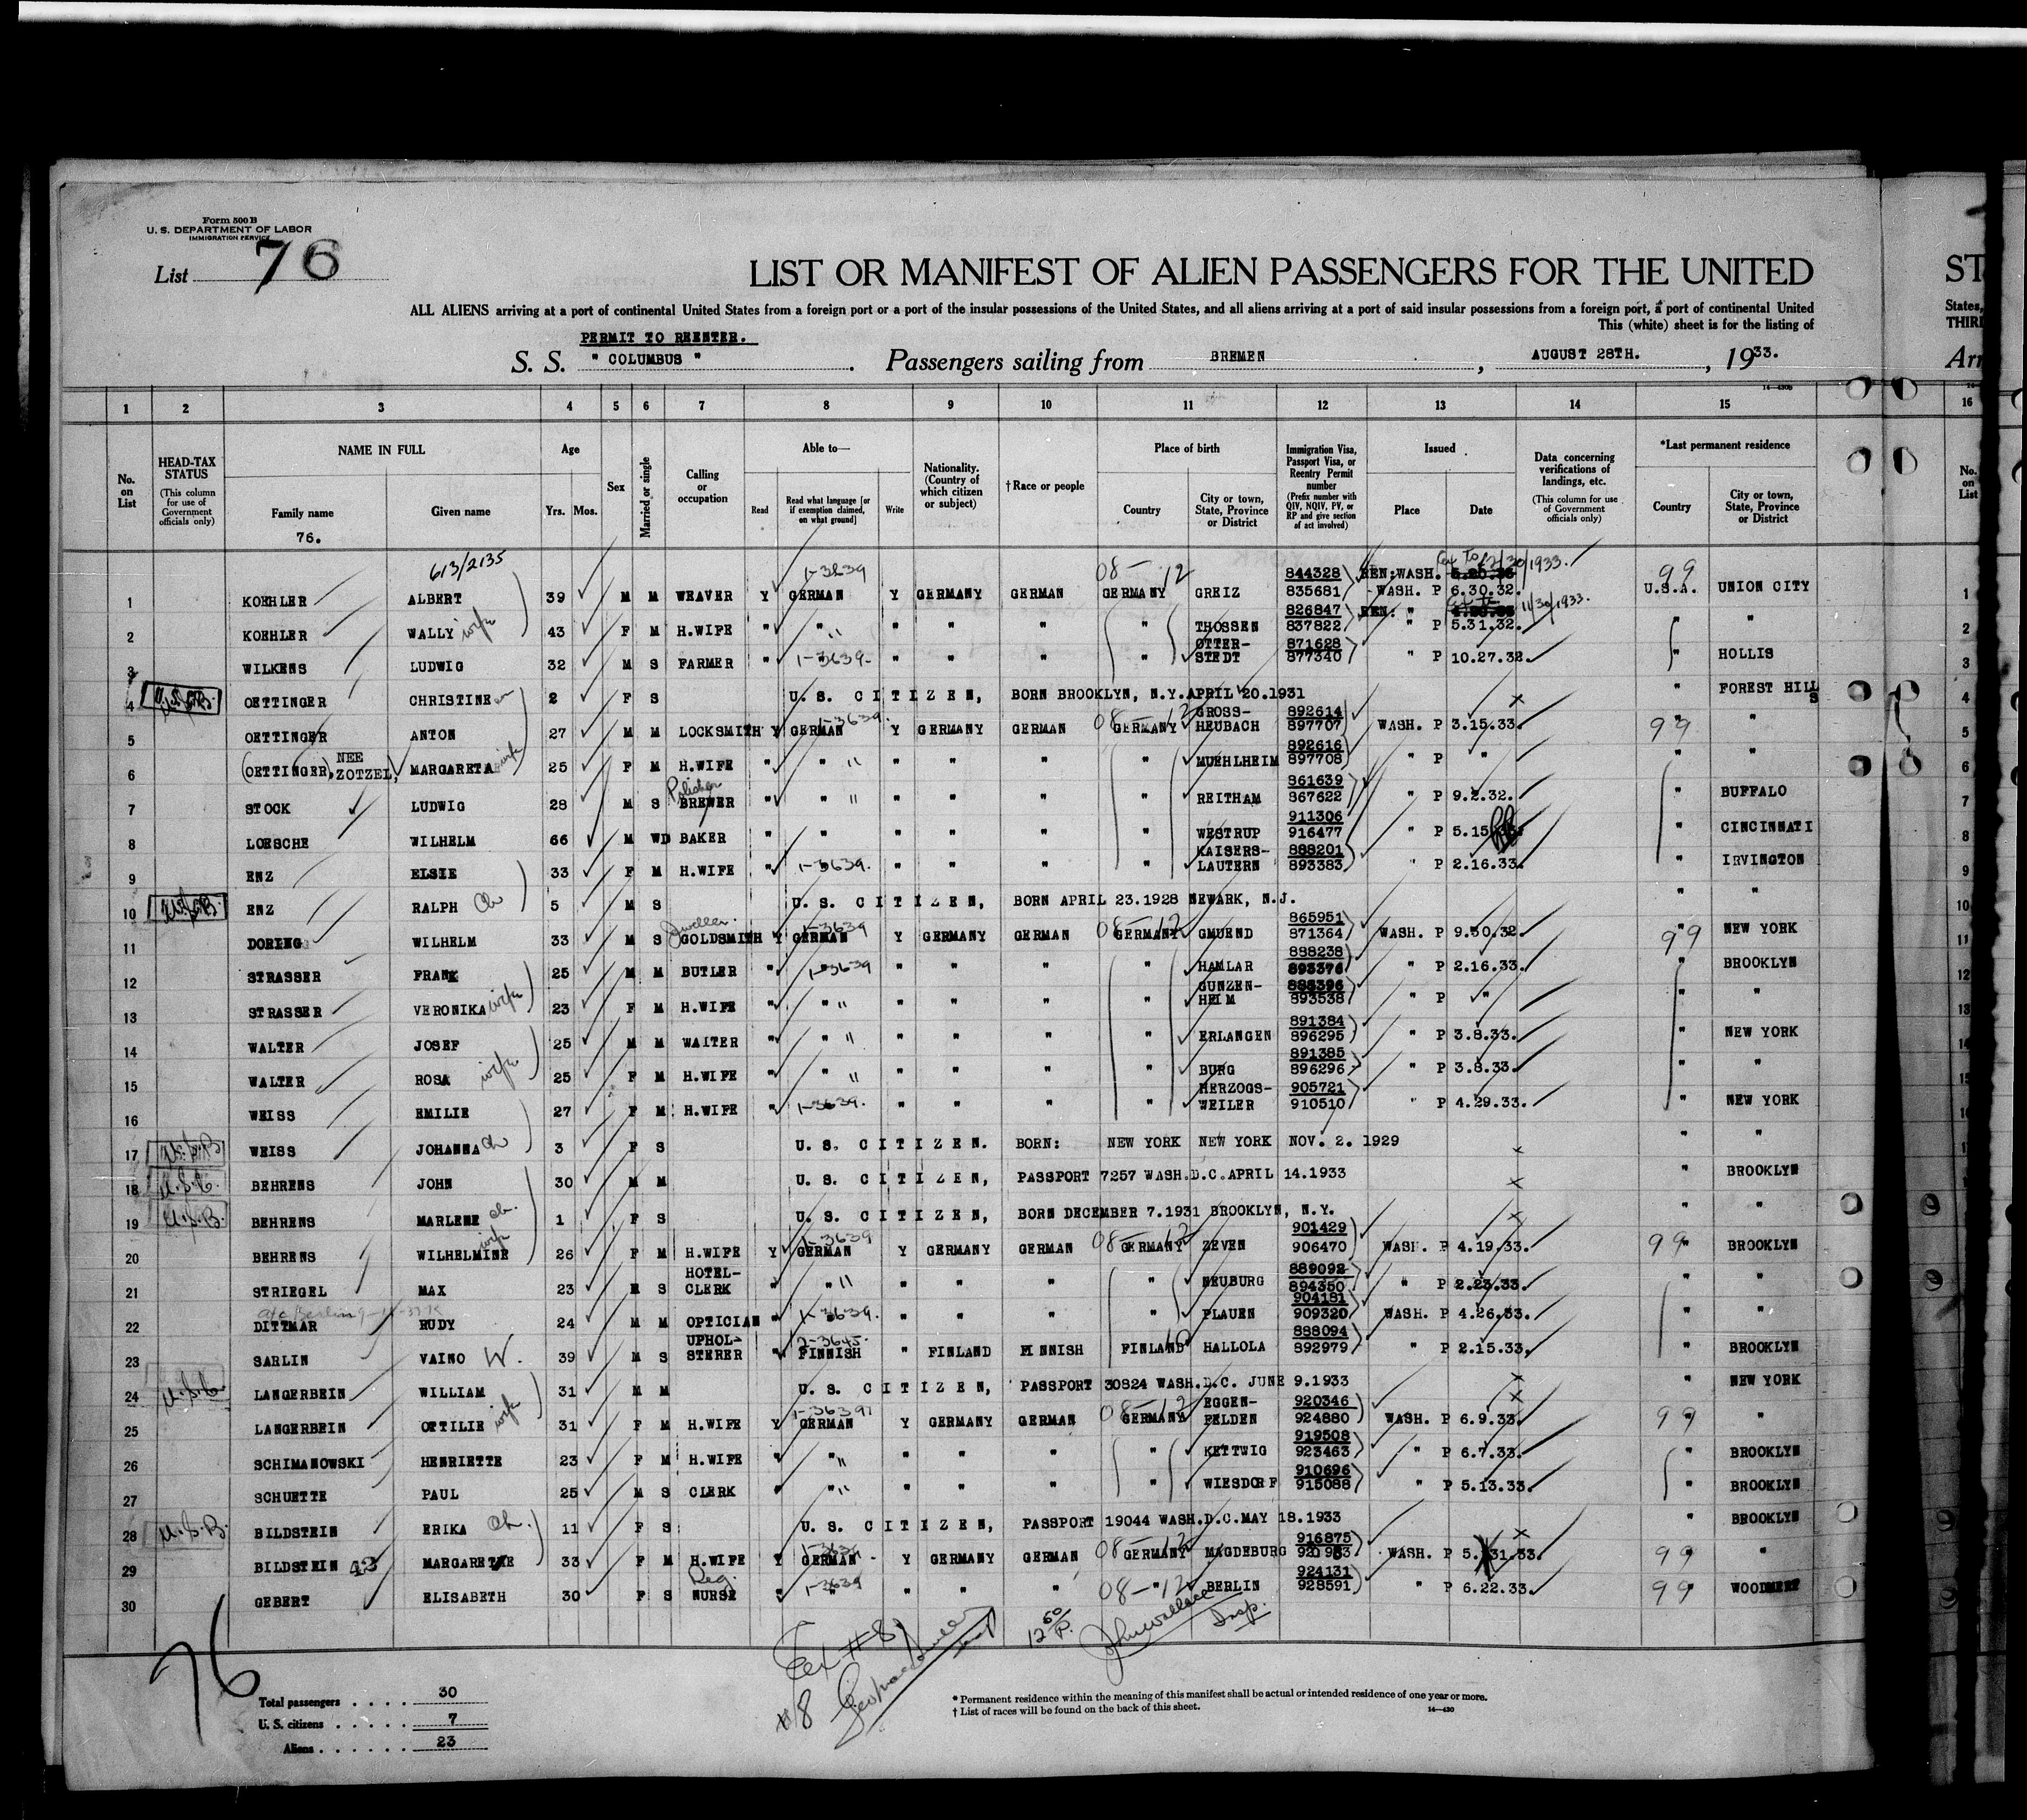 Form 500 B
U. S. DEPARTMENT OF LABOR
IMMIGRATION SERVICE
List 76
LIST OR MANIFEST OF ALIEN PASSENGERS FOR THE UNITED
ST
ALL ALIENS arriving at a port of continental United States from a foreign port or a port of the insular possessions of the United States, and all aliens arriving at a port of said insular possessions from a foreign port, a port of continental United
States,
This (white) sheet is for the listing of
THIRD
PERMIT TO REENTER.
S. S. " COLUMBUS ". Passengers sailing from BREMEN, AUGUST 28TH., 1933.
Arr
1 2 3 4 5 6 7 8 9 10 11 12 13 14 15 16
No. on List
HEAD-TAX STATUS (This column for use of Government officials only)
NAME IN FULL
Family name
Given name
76.
Age
Yrs. Mos.
Sex
Married or single
Calling or occupation
Able to—
Read
Read what language [or if exemption claimed, on what ground]
Write
Nationality. (Country of which citizen or subject)
† Race or people
Place of birth
Country
City or town, State, Province or District
Immigration Visa, Passport Visa, or Reentry Permit number (Prefix number with QIV, NQIV, PV, or RP and give section of act involved)
Issued
Place
Date
Data concerning verifications of landings, etc. (This column for use of Government officials only)
*Last permanent residence
Country
City or town, State, Province or District
No. on List
613/2135
1 KOEHLER ALBERT 39 M M WEAVER Y GERMAN Y GERMANY GERMAN GERMANY GREIZ 844328 835681 REN: WASH. WASH. P 6.30.32. 12/30/1933. U.S.A. UNION CITY 1
2 KOEHLER WALLY wife 43 F M H.WIFE " " " " " " THOSSEN 826847 837822 REN. " " P 5.31.32. 11/30/1933. " " 2
3 WILKENS LUDWIG 32 M S FARMER " 1-3639 " " " " OTTER-STEDT 871628 877340 " P 10.27.32. " HOLLIS 3
4 U.S.B. OETTINGER CHRISTINE 2 F S U. S. CITIZEN, BORN BROOKLYN, N.Y. APRIL 20.1931 " FOREST HILLS 4
5 OETTINGER ANTON 27 M M LOCKSMITH Y GERMAN Y GERMANY GERMAN 08-12 GERMANY GROSS-HEUBACH 892614 897707 WASH. P 3.15.33. 99 " " 5
6 (OETTINGER), NEE ZOTZEL, MARGARETA wife 25 F M H.WIFE " " " " " " MUEHLHEIM 892616 897708 " P " " " 6
7 STOCK LUDWIG 28 M S Polisher BREWER " " " " " " REITHAM 861639 867622 " P 9.2.32. " BUFFALO 7
8 LOESCHE WILHELM 66 M WD BAKER " " " " " " WESTRUP 911306 916477 " P 5.15 " CINCINNATI 8
9 ENZ ELSIE 33 F M H.WIFE " 1-3639. " " " " KAISERS-LAUTERN 888201 893383 " P 2.16.33. " IRVINGTON 9
10 U.S.B. ENZ RALPH Ch 5 M S U. S. CITIZEN, BORN APRIL 23.1928 NEWARK, N.J. " " 10
11 DORING WILHELM 33 M S Jweller. GOLDSMITH Y 1-3639 GERMAN Y GERMANY GERMAN 08-12 GERMANY GMUEND 865951 871364 WASH. P 9.30.32. 99 " NEW YORK 11
12 STRASSER FRANK 25 M M BUTLER " 1-3639 " " " " HAMLAR 888238 893376 " P 2.16.33. " BROOKLYN 12
13 STRASSER VERONIKA wife 23 F M H.WIFE " " " " " " GUNZEN-HEIM 888396 893538 " P " " " 13
14 WALTER JOSEF 25 M M WAITER " " " " " " ERLANGEN 891384 896295 " P 3.8.33. " NEW YORK 14
15 WALTER ROSA wife 25 F M H.WIFE " " " " " " BURG 891385 896296 " P 3.8.33. " " 15
16 WEISS EMILIE 27 F M H.WIFE " 1-3639. " " " " HERZOGS-WEILER 905721 910510 " P 4.29.33. " NEW YORK 16
17 U.S.B WEISS JOHANNA Ch 3 F S U. S. CITIZEN. BORN: NEW YORK NEW YORK NOV. 2. 1929 " "
18 U.S.C. BEHRENS JOHN 30 M M U. S. CITIZEN, PASSPORT 7257 WASH.D.C.APRIL 14.1933 " BROOKLYN
19 U.S.B. BEHRENS MARLENE ch. 1 F S U. S. CITIZEN, BORN DECEMBER 7.1931 BROOKLYN, N.Y. " "
20 BEHRENS WILHELMINE wife 26 F M H.WIFE Y 1-3639 GERMAN Y GERMANY GERMAN 08-12 GERMANY ZEVEN 901429 906470 WASH. P 4.19.33. 99 " BROOKLYN
21 STRIEGEL MAX 23 M S HOTEL-CLERK " " " " " " NEUBURG 889092 894350 " P 2.23.33. " "
22 DITTMAR RUDY 24 M M OPTICIAN " 1-3639. " " " " PLAUEN 904181 909320 WASH. P 4.26.33. " "
23 SARLIN VAINO W. 39 M S UPHOL-STERER " 2-3645. FINNISH " FINLAND FINNISH FINLAND HALLOLA 888094 892979 " P 2.15.33. " BROOKLYN
24 U.S.C. LANGERBEIN WILLIAM 31 M M U. S. CITIZEN, PASSPORT 30824 WASH.D.C. JUNE 9.1933 " NEW YORK
25 LANGERBEIN OTTILIE wife 31 F M H.WIFE Y GERMAN Y GERMANY GERMAN 08-12 GERMANY EGGEN-FELDEN 920346 924880 WASH. P 6.9.33. 99 " "
26 SCHIMANOWSKI HENRIETTE 23 F M H.WIFE " " " " " KETTWIG 919508 923463 " P 6.7.33. " BROOKLYN
27 SCHUETTE PAUL 25 M S CLERK " " " " " WIESDORF 910696 915088 P 5.13.33. " BROOKLYN
28 U.S.B. BILDSTEIN ERIKA Ch. 11 F S U. S. CITIZEN, PASSPORT 19044 WASH.D.C.MAY 18.1933 " BROOKLYN
29 BILDSTEIN 43 MARGARETHE 33 F M H.WIFE Y GERMAN Y GERMANY GERMAN 08-12 GERMANY MAGDEBURG 916875 WASH. P 5.31.33. 99 "
30 GEBERT ELISABETH 30 F S Reg. NURSE " 1-3639 " " " 08-12 " BERLIN 924131 928591 " P 6.22.33. 99 " WOODMERE
76
#8
John Wallace
Insp.
Total passengers . . . . 30
U. S. citizens . . . . . 7
Aliens . . . . . . 23
* Permanent residence within the meaning of this manifest shall be actual or intended residence of one year or more.
† List of races will be found on the back of this sheet.
14—430